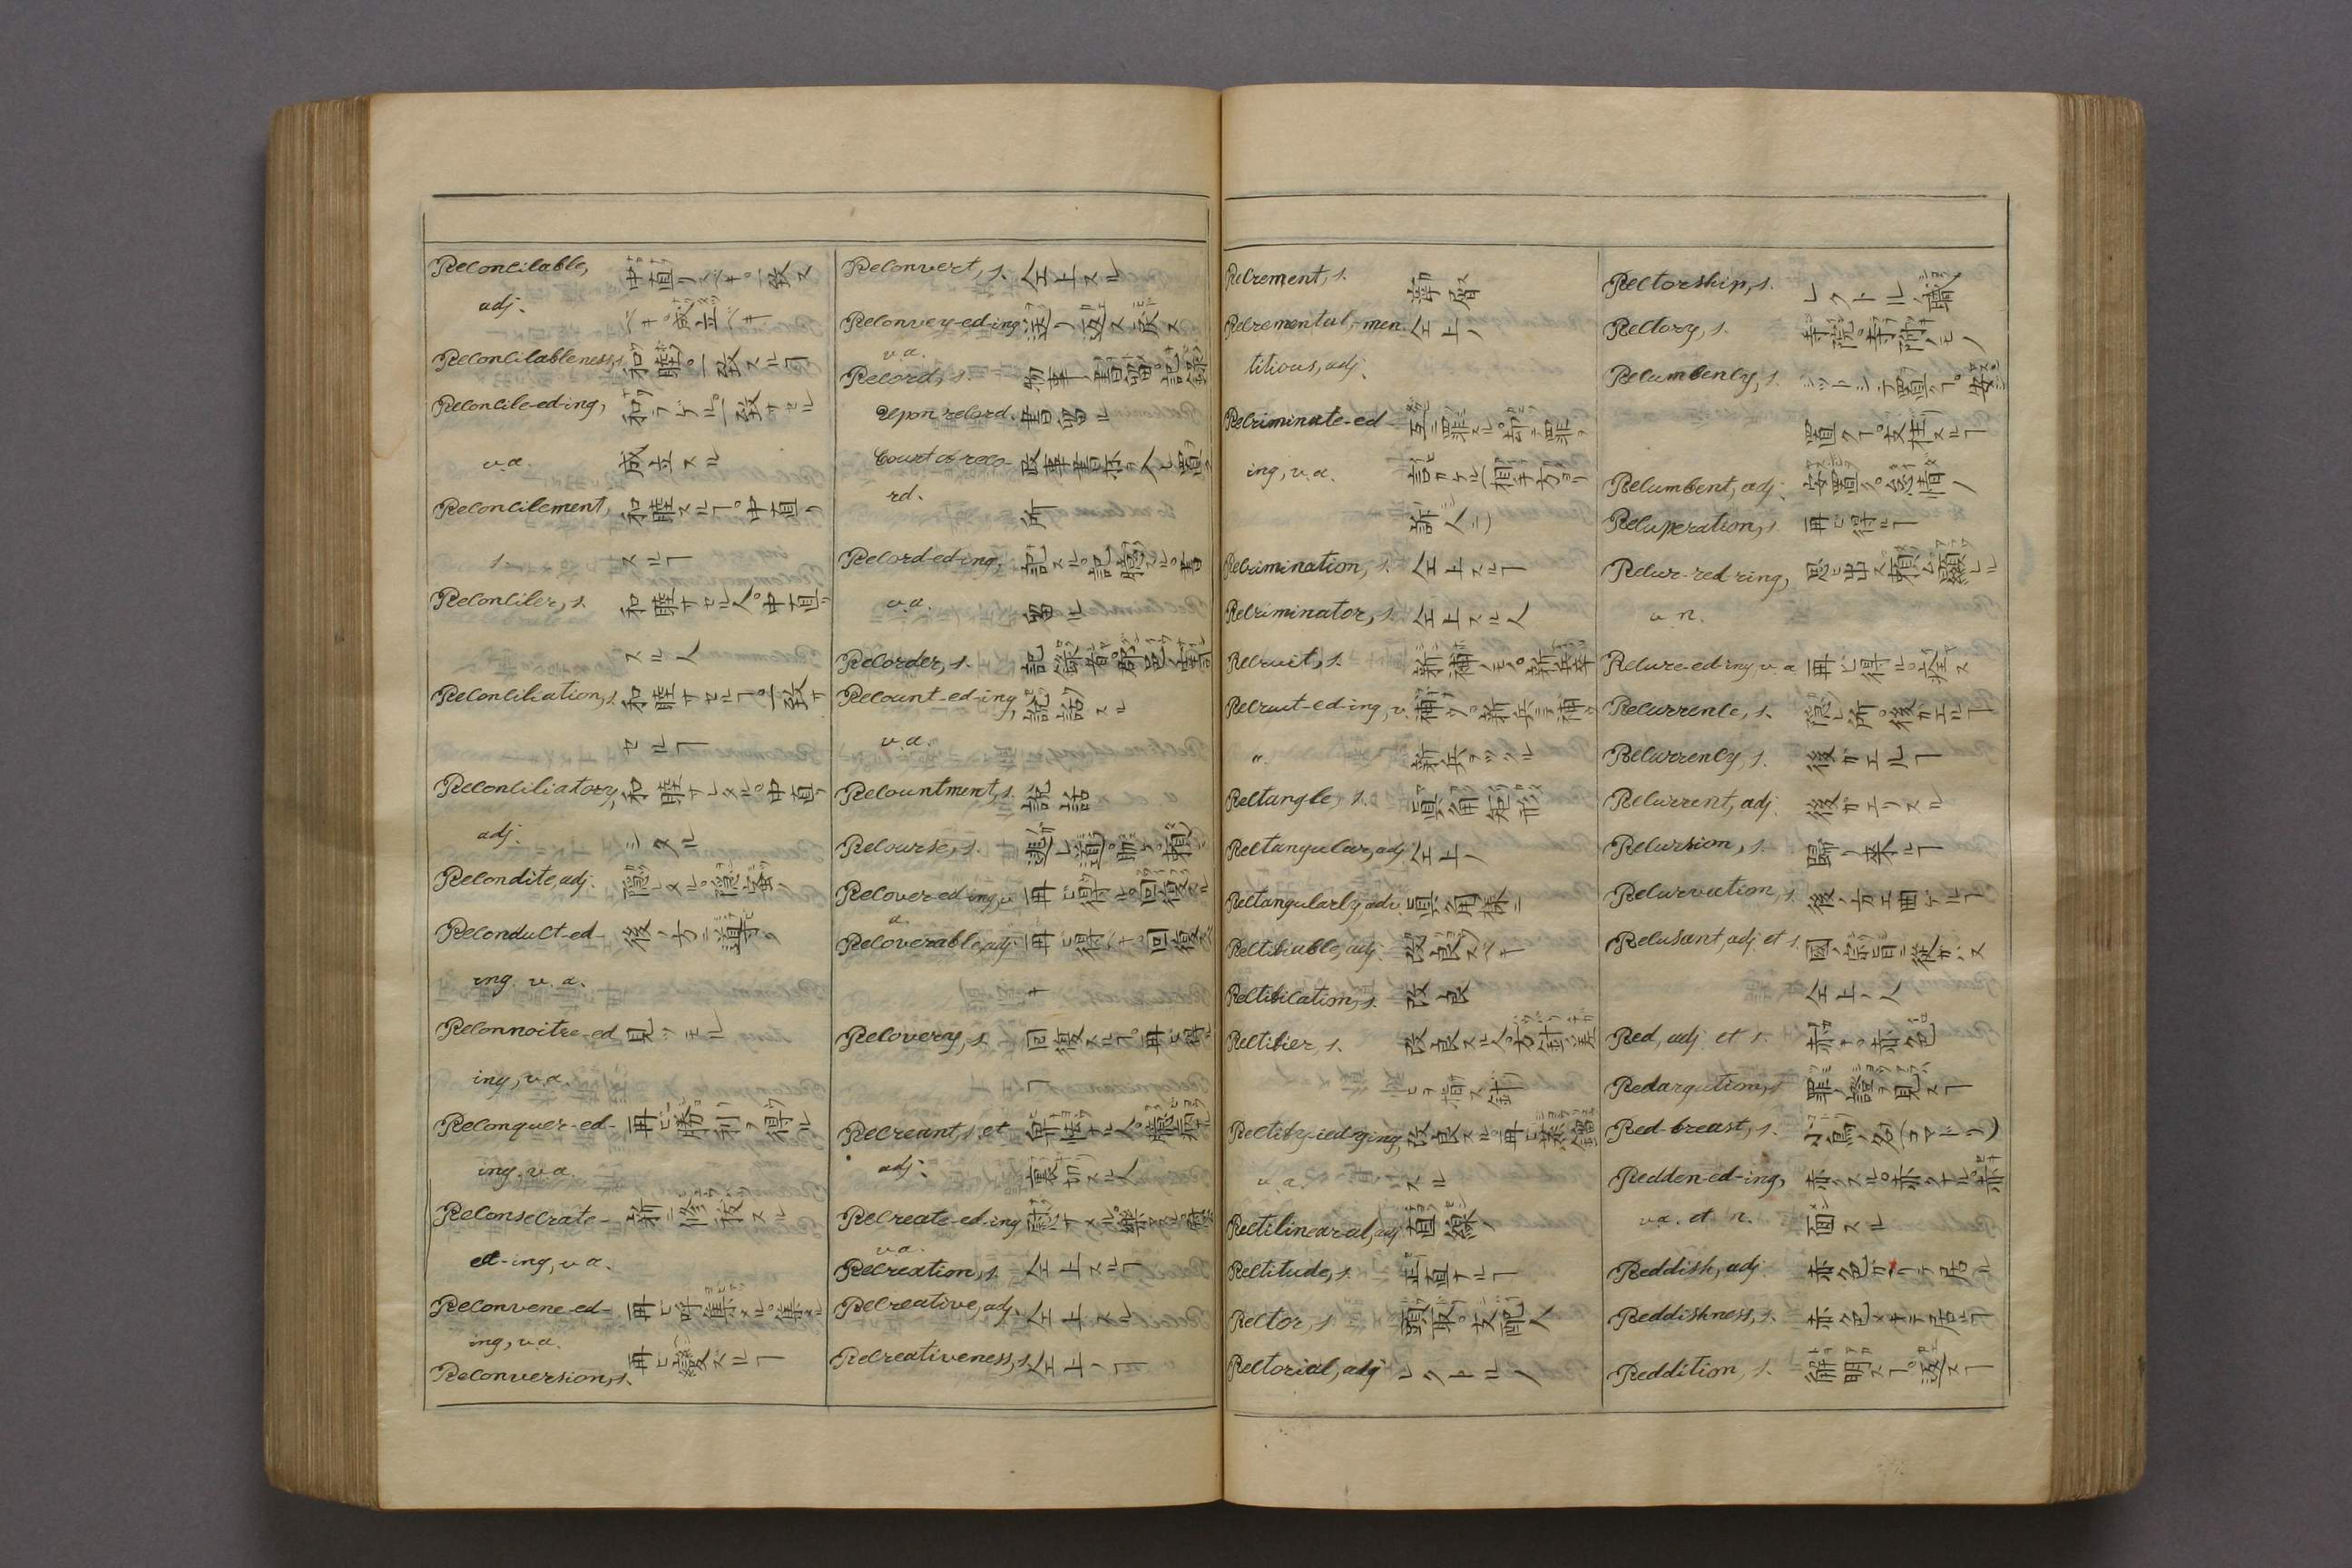 Reconcilable, 中直リベキ。一致ス
adj. ベキ。成立ベキ
Reconcilableness, s. 和睦。一致スルヿ
Reconcile-ed-ing, 和ラゲル。一致サセル
v.a. 成立スル
Reconcilement, 和睦スルヿ。中直リ
s. スルヿ
Reconciler, s. 和睦サセル人。中直リ
スル人
Reconciliation, s. 和睦サセルヿ。一致サ
セルヿ
Reconciliatory, 和睦サレタル。中直リ
adj. シタル
Recondite, adj. 隠レタル。隠密ノ
Reconduct-ed- 後ノ方ニ導ク
ing. v. a.
Reconnoitre-ed 見ツモル
ing, v.a.
Reconquer-ed- 再ビ勝利ヲ得ル
ing, v.a.
Reconsecrate- 新ニ修複スル
ed-ing, v.a.
Reconvene-ed- 再ビ呼集メル。集メル
ing, v.a.
Reconversion, s. 再ビ改スルヿ
Reconvert, s. 仝上スル
Reconvey-ed-ing 送リ返ス。戻ス
v.a.
Record, s. 物事ノ書留。記録
Upon record. 書留ル
Court of reco- 政事書抔ヲ入レ置ク
rd. 所
Record-ed-ing, 記スル。記臆スル。書
v.a. 留ル
Recorder, s. 記録者。
Recount-ed-ing, 説話スル
v.a.
Recountment, s. 説話
Recourse, s. 逃レ道。助ケ。頼ミ
Recover-ed-ing, v. 再ビ得ル。回復スル
a.
Recoverable, adj. 再ビ得ベキ。回復スベ
キ
Recovery, s. 回復スルヿ。再ビ得ル
ヿ
Recreant, s. et 卑怯ナル人。
adj. 裏切スル人
Recreate-ed-ing 慰サメル。楽マスル。
v.a.
Recreation, s. 仝上スルヿ
Recreative, adj. 仝上スル
Recreativeness, s. 仝上ノヿ
Recrement, s. 滓屑
Recremental,-men 仝上ノ
titious, adj.
Recriminate-ed- 互ニ罪スル。却テ罪ヲ
ing, v.a. 言カケル(相手方ヨリ
訴人ニ)
Recrimination, s. 仝上スルヿ
Recriminator, s. 仝上スル人
Recruit, s. 新補ノモノ。新兵卒
Recruit-ed-ing, v. 補フ。新兵ヲ補フ
a. 新兵ヲツクル
Rectangle, s. 真角矩形
Rectangular, adj. 仝上ノ
Rectangularly, adv. 真角様ニ
Rectifiable, adj. 改良スベキ
Rectification, s. 改良
Rectifier, s. 改良スル人。方針ノ差
ヒヲ指ス針
Rectify-ied-ying, 改良スル。再ビ蒸溜
v.a. スル
Rectilinear-al, adj. 直線ノ
Rectitude, s. 正直ナルヿ
Rector, s. 頭取。支配人
Rectorial, adj. レクトルノ
Rectorship, s. レクトルノ職
Rectory, s. 寺院。寺附ノモノ
Recumbency, s. ジットシテ置クヿ。安
置クヿ。支柱スルヿ
Recumbent, adj. 安置ク。怠惰ノ
Recuperation, s. 再ビ得ルヿ
Recur-red-ring, 思ヒ出ス。頼ム。願ヒル
v. n.
Recure-ed-ing, v.a. 再ビ得ル。痊ス
Recurrence, s. 隠レ所。後ガエルヿ
Recurrency, s. 後ガエルヿ
Recurrent, adj. 後ガエリスル
Recursion, s. 歸リ来ルヿ
Recurvation, s. 後ノ方エ曲ゲルヿ
Recusant, adj. et s. 國ノ宗旨ニ從ガハヌ
仝上ノ人
Red, adj. et s. 赤キ。赤色
Redargution, s. 罪ノ證ヲ見スヿ
Red-breast, s. 小鳥ノ名(コマドリ)
Redden-ed-ing, 赤クスル。赤クナル。赤
v.a. et n. 面スル
Reddish, adj. 赤色ガカリテ居ル
Reddishness, s. 赤色メキテ居ルヿ
Reddition, s. 解明スヿ。返スヿ